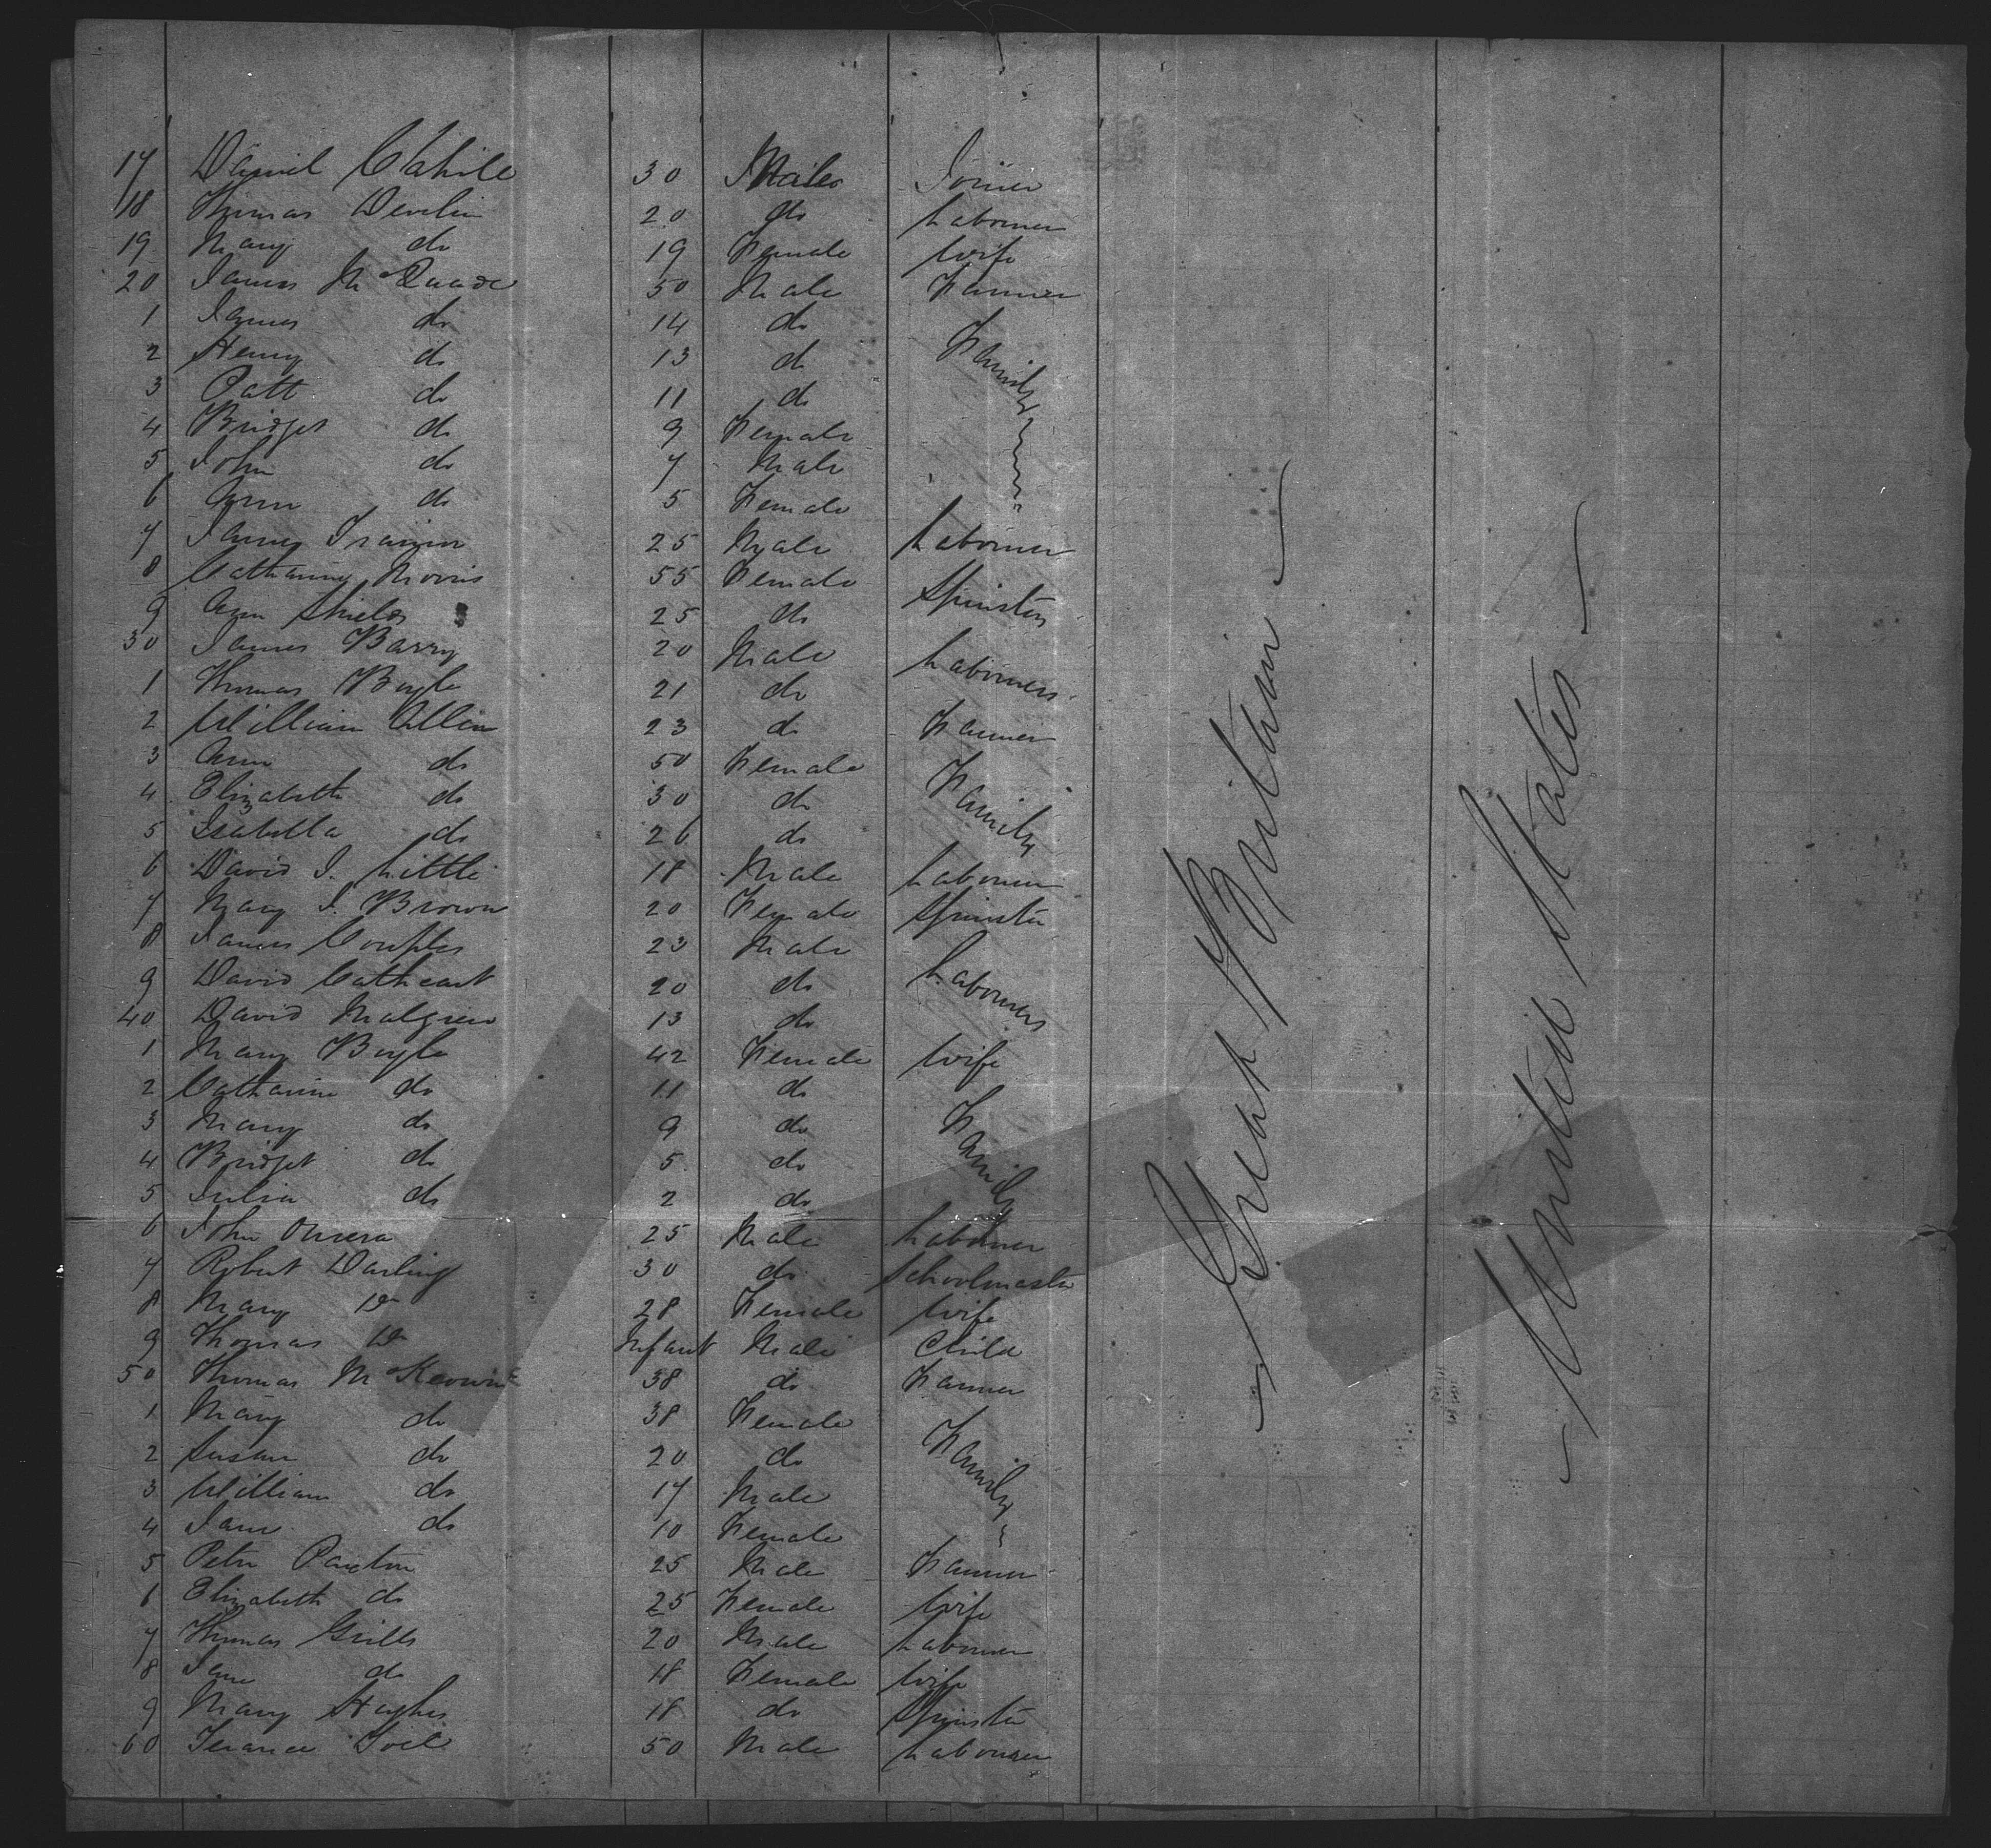 17 Daniel Cahill 30 Male Joiner
18 Thomas Devlin 20 do Labourer
19 Mary do 19 Female Wife
20 James McQuade 50 Male Farmer
1 James do 14 do Family
2 Henry do 13 do
3 Patt do 11 do
4 Bridget do 9 Female
5 John do 7 Male
6 Ann do 5 Female
7 James Trainor 25 Male Labourer
8 Catharine Morris 55 Female Spinsters
9 Ann Shields 25 do
30 James Barry 20 Male Labourers
1 Thomas Boyle 21 do
2 William Allen 23 do Farmer
3 Ann do 50 Female Family
4 Elizabeth do 30 do
5 Isabella do 26 do
6 David J. Little 18 Male Labourer
7 Mary J. Brown 20 Female Spinster
8 James Couples 23 Male Labourers
9 David Cathcart 20 do
40 David Malgrew 13 do
1 Mary Boyle 42 Female Wife
2 Catharine do 11 do Family
3 Mary do 9 do
4 Bridget do 5 do
5 Julia do 2 do
6 John Omera 25 Male Labourer
7 Robert Darling 30 do Schoolmaster
8 Mary Do 28 Female Wife
9 Thomas Do Infant Male Child
50 Thomas McKeown 38 do Farmer
1 Mary do 38 Female Family
2 Susan do 20 do
3 William do 17 Male
4 Jane do 10 Female
5 Peter 25 Male Farmer
6 Elizabeth do 25 Female Wife
7 Thomas Grills 20 Male Labourer
8 Jane do 18 Female Wife
9 Mary Hughes 18 do Spinster
60 Terance 50 Male Labourer
Great Britain
United States